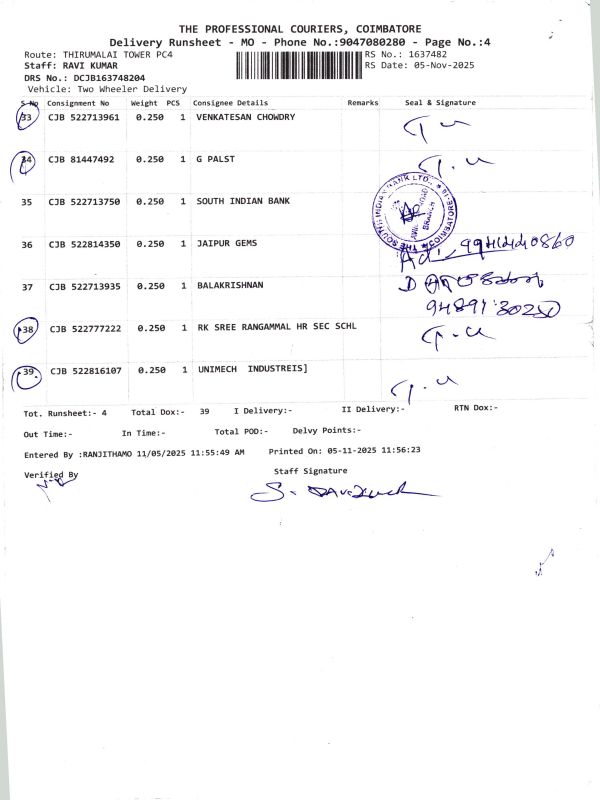 THE PROFESSIONAL COURIERS, COIMBATORE
Delivery Runsheet - MO - Phone No.:9047080280 - Page No.:4
Route: THIRUMALAI TOWER PC4 RS No.: 1637482
Staff: RAVI KUMAR RS Date: 05-Nov-2025
DRS No.: DCJB163748204
Vehicle: Two Wheeler Delivery
S No Consignment No Weight PCS Consignee Details Remarks Seal & Signature
33 CJB 522713961 0.250 1 VENKATESAN CHOWDRY
34 CJB 81447492 0.250 1 G PALST
35 CJB 522713750 0.250 1 SOUTH INDIAN BANK
36 CJB 522814350 0.250 1 JAIPUR GEMS
37 CJB 522713935 0.250 1 BALAKRISHNAN
38 CJB 522777222 0.250 1 RK SREE RANGAMMAL HR SEC SCHL
39 CJB 522816107 0.250 1 UNIMECH INDUSTREIS]
Tot. Runsheet:- 4 Total Dox:- 39 I Delivery:- II Delivery:- RTN Dox:-
Out Time:- In Time:- Total POD:- Delvy Points:-
Entered By :RANJITHAMO 11/05/2025 11:55:49 AM Printed On: 05-11-2025 11:56:23
Verified By Staff Signature